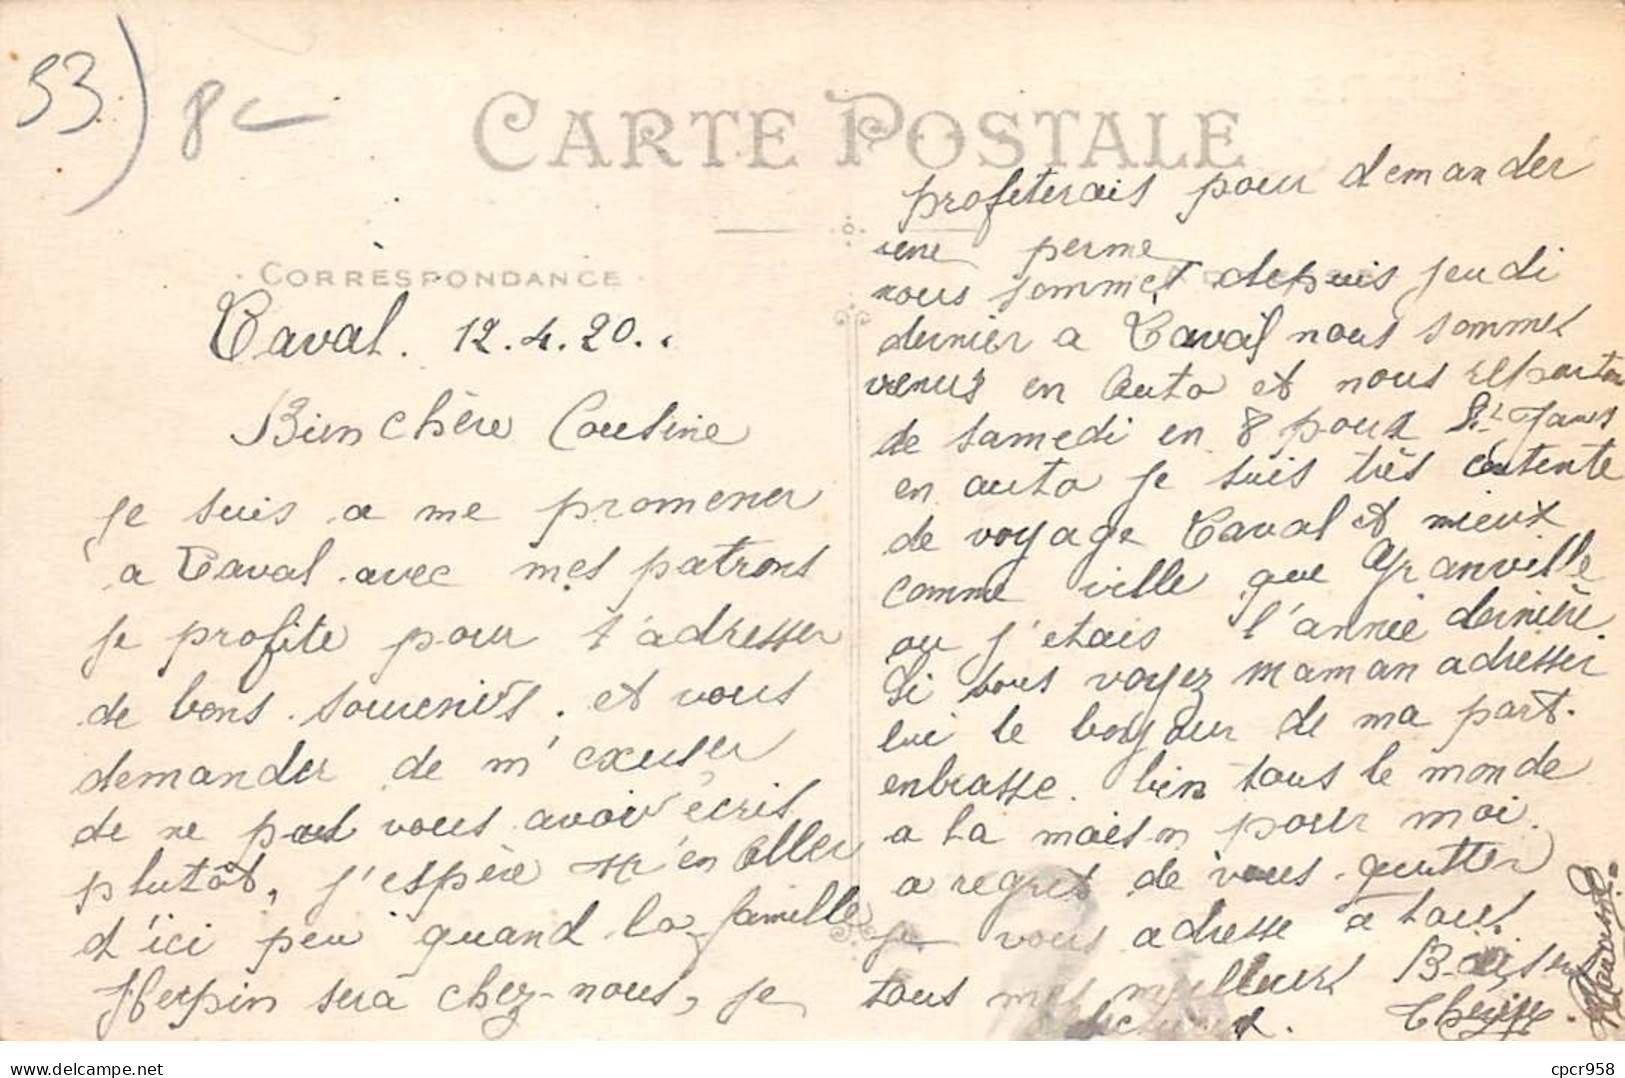 53) 8
CARTE POSTALE
CORRESPONDANCE
Laval. 12.4.20..
Bien chère Cousine
je suis a me promener
a Laval avec mes patrons
je profite pour t'adresser
de bons souvenirs. et vous
demander de m'exuser
de ne pas vous avoir écris
plutôt, j'espère m'en Aller
d'ici peu quand la famille
Herpin sera chez-nous, je
profiterais pour demander
une perme
nous sommes depuis jeudi
dernier a Laval nous sommes
venus en auto et nous reparton
de samedi en 8 pour St James
en auto je suis très contente
de voyage Laval et mieux
comme ville que Granville
ou j'etais l'année dernière.
Si vous voyez maman adresser
lui le bonjour de ma part.
enbrasse bien tous le monde
a la maison pour moi.
a regret de vous quitter
je vous adresse a tous
tous mes meilleurs Baiser
Therèse.
delcampe.net
cpcr958